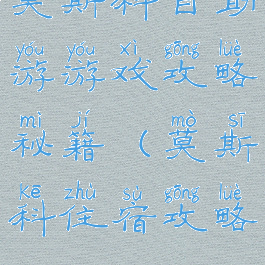 莫斯科自助
yóu yóu xì gōng lüè
游游戏攻略
mì jí mò sī
秘籍（莫斯
kē zhù sù gōng lüè
科住宿攻略